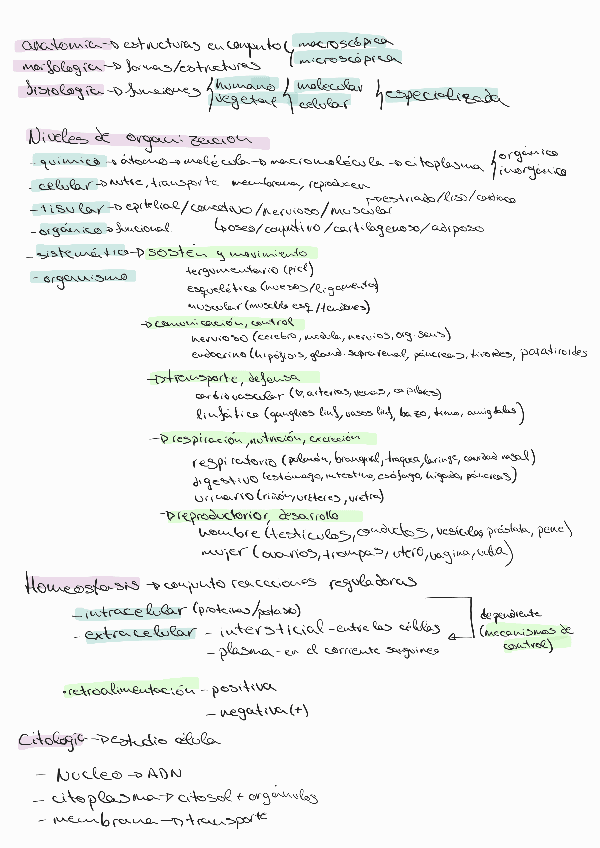 anatomia → estructuras en conjunto { macroscópica
microscópica
morfologia → formas/estructuras
fisiologia → funciones { humano { molecular { especializada
vegetal celular
Niveles de organización
- químico → átomo → molécula → macromolécula → citoplasma { orgánico
inorgánico
- celular → nutre, transporte membrana, reproducen
→ estriado/liso/cardiaco
- tisular → epitelial/conectivo/nervioso/muscular
- orgánico → funcional ↳ oseo/conjuntivo/cartilaginoso/adiposo
- sistemático → sostén y movimiento
- organismo
tergumentario (piel)
esquelético (huesos/ligamento)
muscular (musculo esq/tendones)
→ comunicación, control
nervioso (cerebro, medula, nervios, org. sens)
endocrino (hipófisis, gland. suprarenal, páncreas, tiroides, paratiroides
→ transporte, defensa
cardiovascular (♡, arterias, venas, capilares)
linfático (ganglios linf, vasos linf, bazo, timo, amigdalas)
→ respiración, nutrición, excreción
respiratorio (pulmón, bronquial, traquea, laringe, cavidad nasal)
digestivo (estómago, intestino, esófago, higado, páncreas)
urinario (riñón, uréteres, uretra)
→ reproductorior, desarrollo
hombre (testiculos, conductos, vesiculas, próstata, pene)
mujer (ovarios, trompas, utero, vagina, vulva)
Homeostasis → conjunto reacciones reguladoras
- intracelular (proteinas/potasio)
- extracelular - intersticial - entre las células
- plasma - en el corriente sanguineo
dependiente
(mecanismos de
control)
· retroalimentación - positiva
- negativa (+)
Citologia → estudio célula
- Nucleo → ADN
- citoplasma → citosol + orgánulos
- membrana → transporte